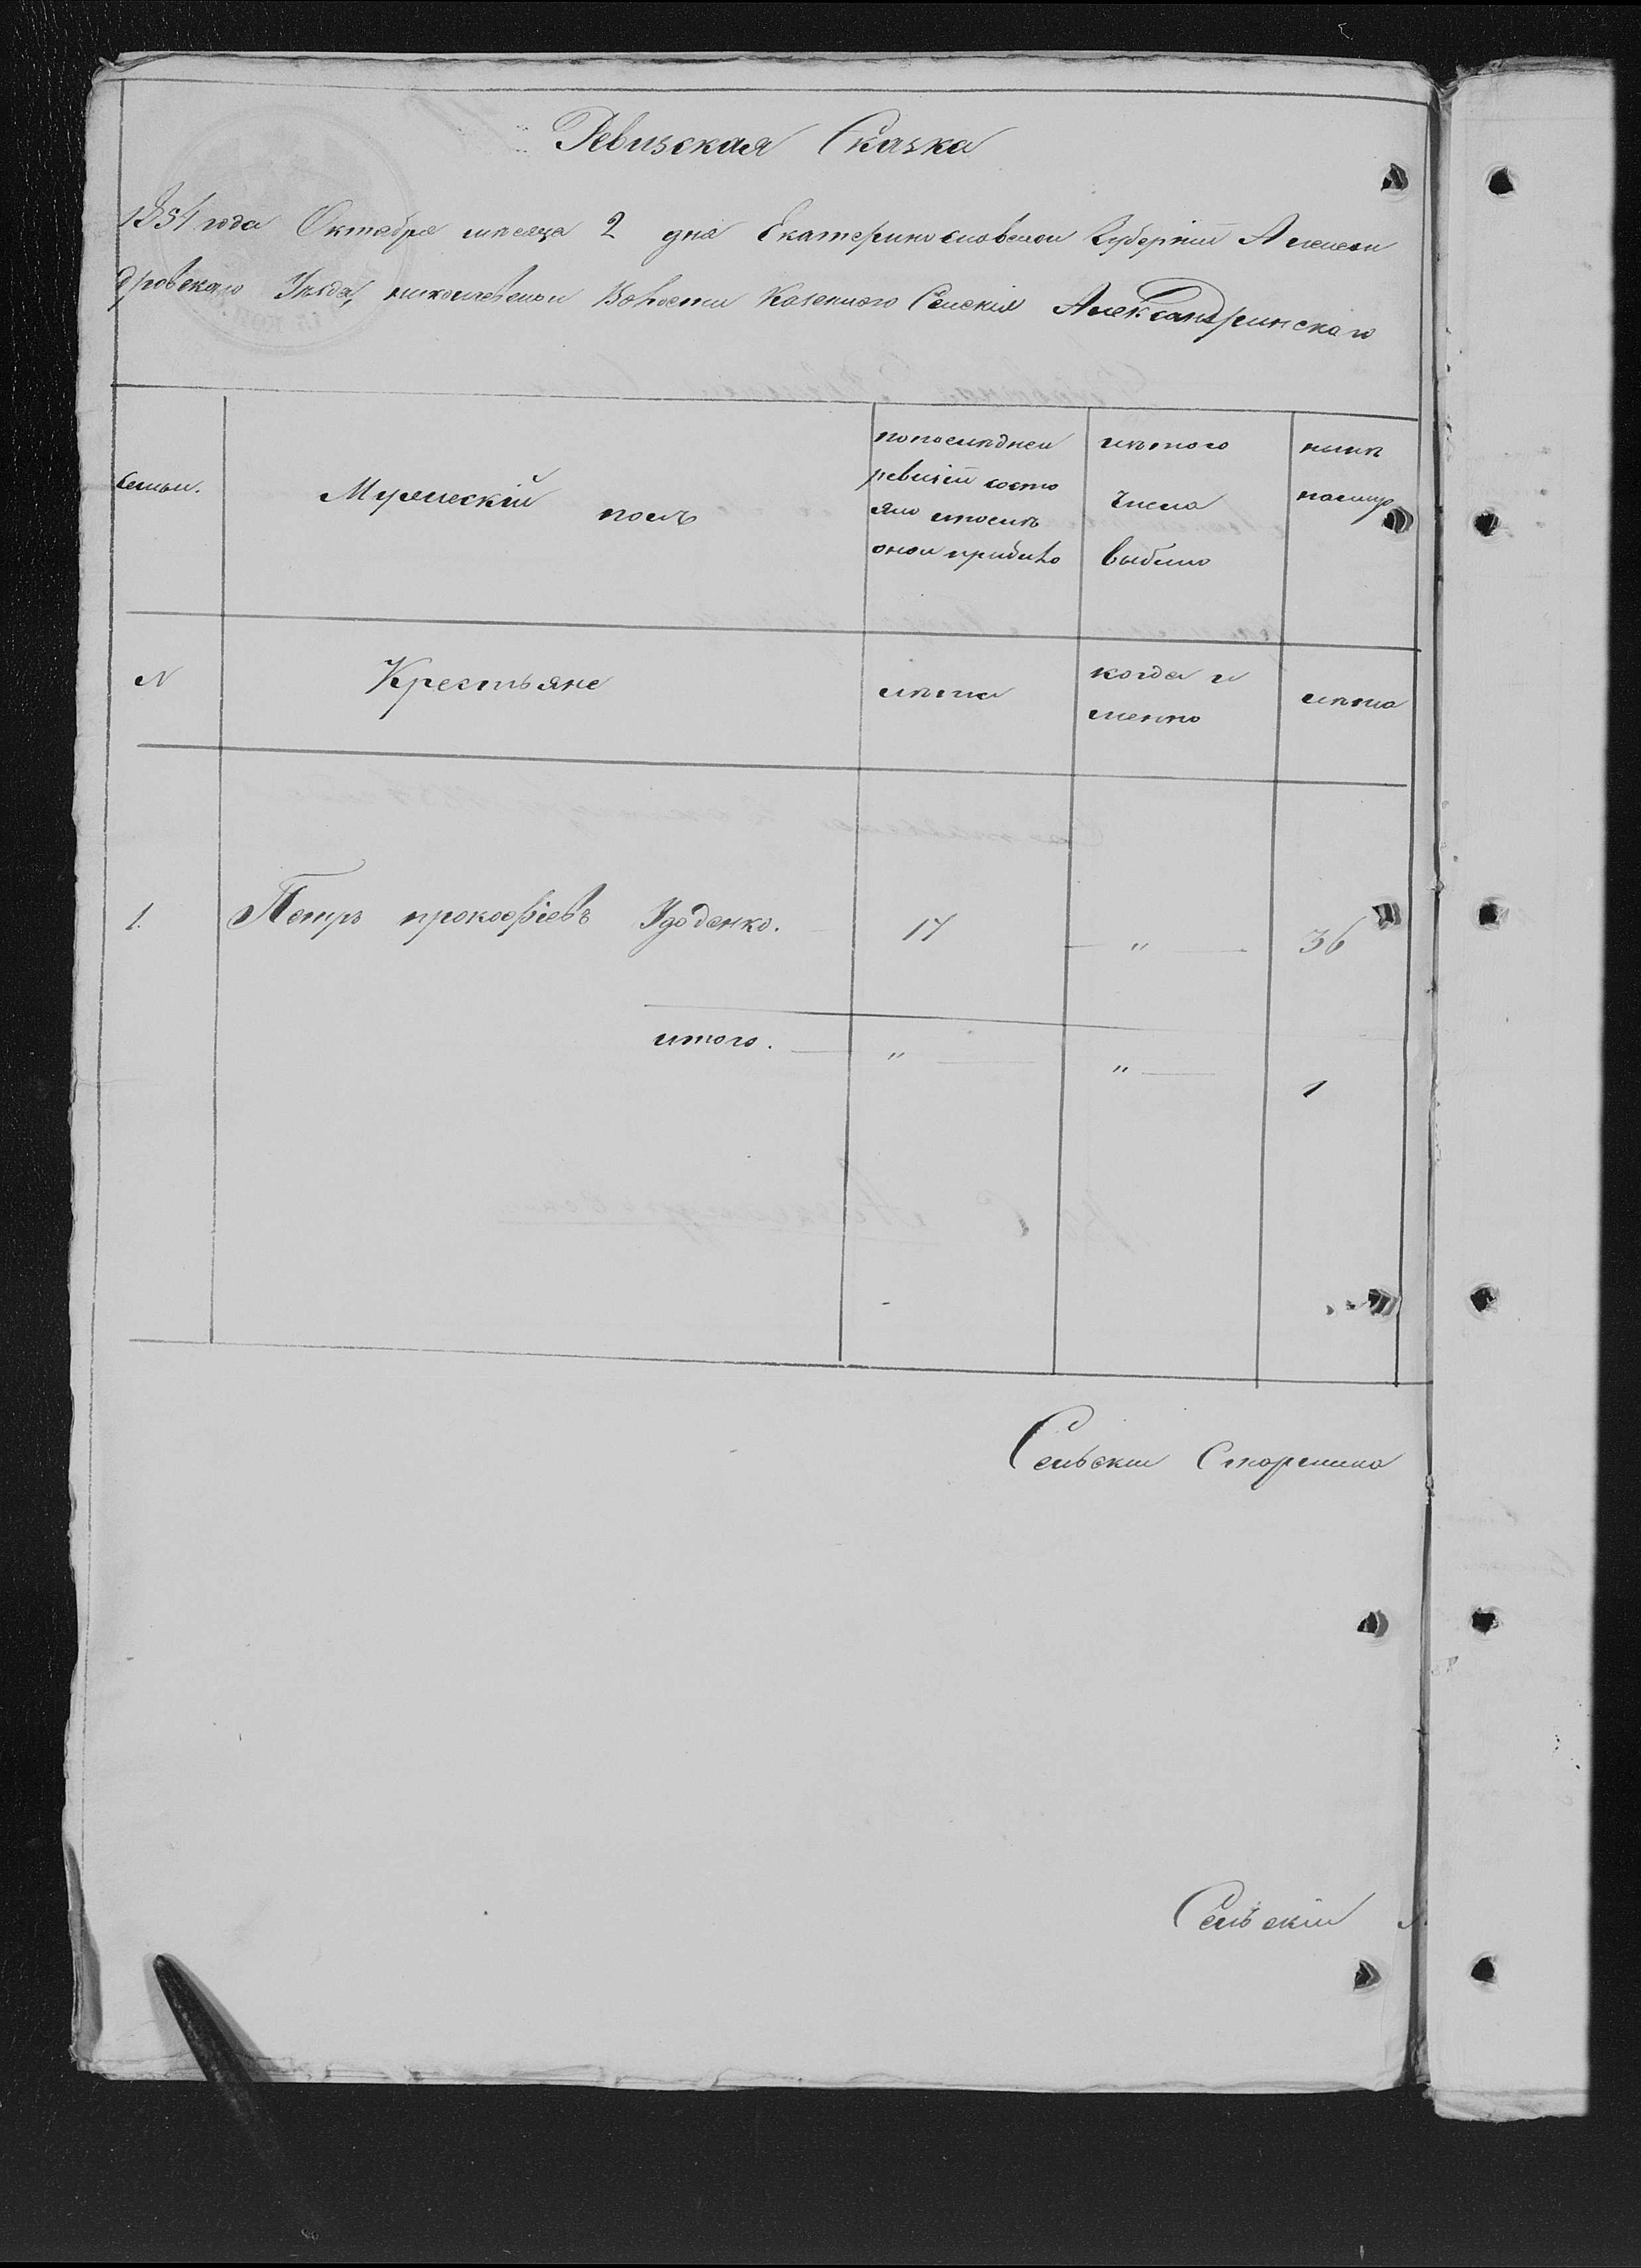 Ревизская Сказка
1854 года Октебря месяца 2 дня Екатеринославской Губернии Алексан
дровскаго Уезда, николаевской Волости Казенного Селения Александринскаго
Семьи.
Мужескій полъ
попоследней
ревизіи состо
яло ипослѣ
оной прибыло
изтого
Числа
выбыло
нынѣ
налицо
N
Крестьяне
лѣта
когда и
менно
лѣта
1. Петръ прокофіевъ Удоденко. 17 — " — 36
итого. — " — " — 1
Сельский Старшина
Сельскій